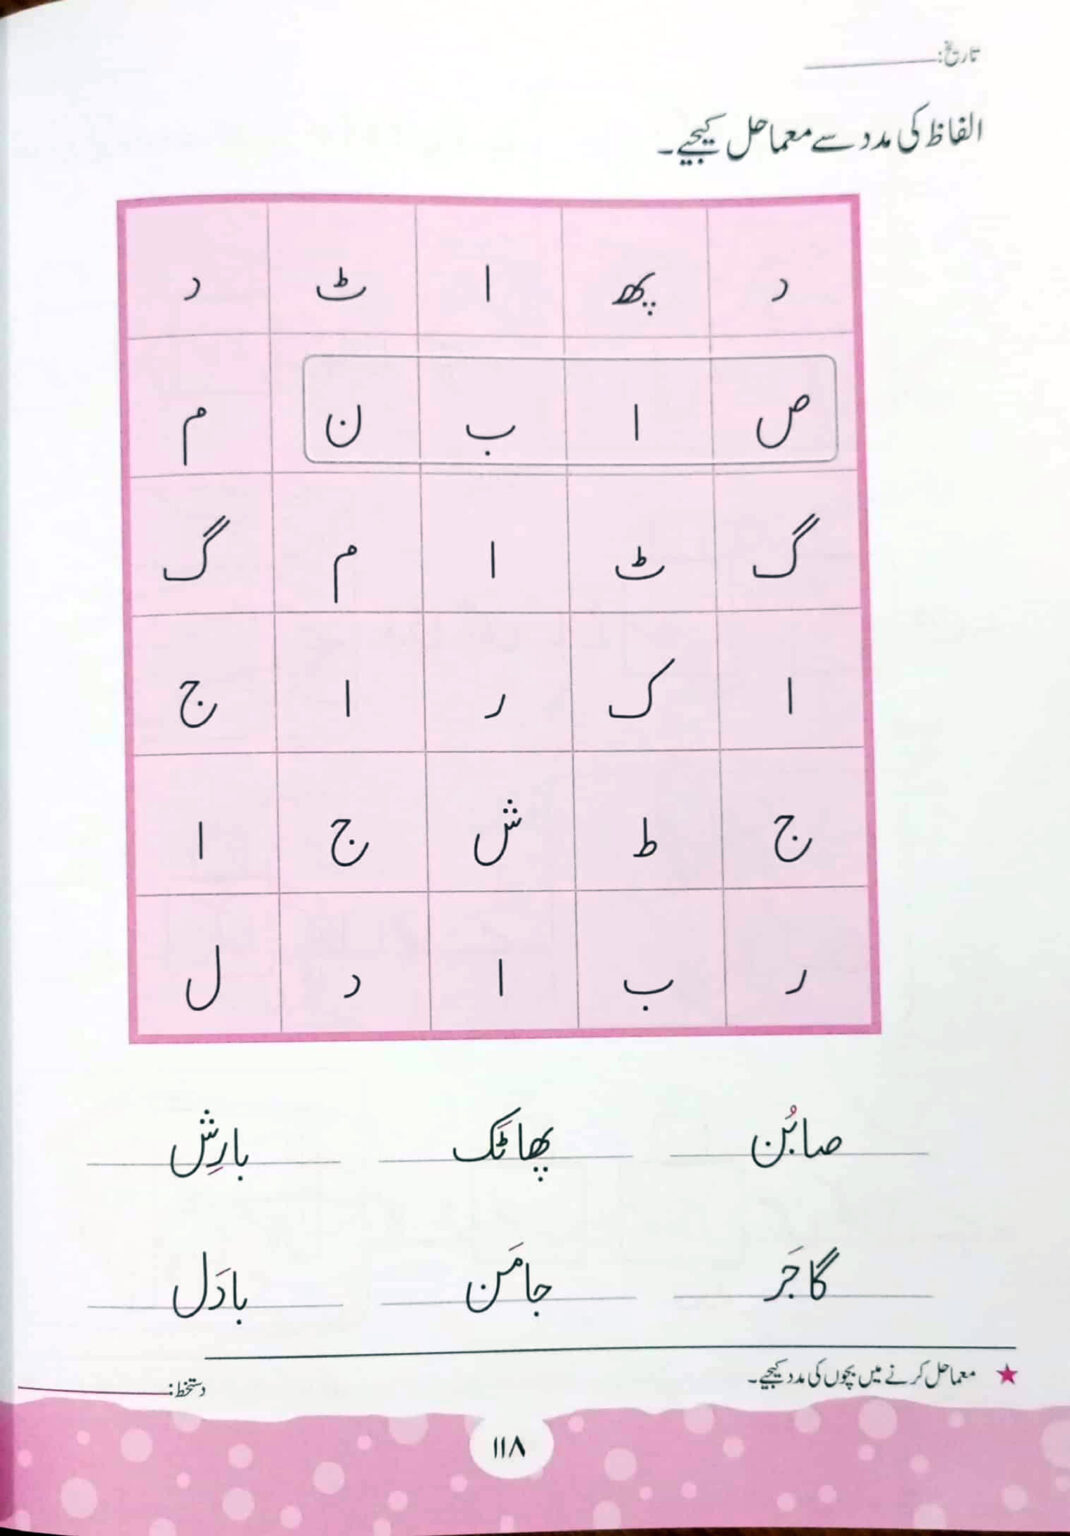 تاریخ:
الفاظ کی مدد سے معما حل کیجیے۔
د پھ ا ٹ د
ص ا ب ن م
گ ٹ ا م گ
ا ک ر ا ج
ج ط ش ج ا
ر ب ا د ل
صابُن پھاٹَک بارِش
گاجَر جامَن بادَل
★ معما حل کرنے میں بچوں کی مدد کیجیے۔ دستخط:
۱۱۸